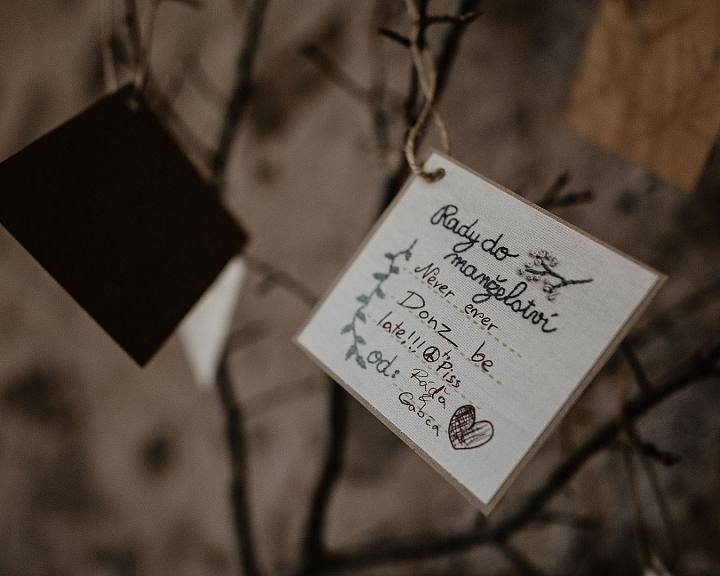 Rady do
manželství
Never ever
Donz be
late!!! Piss
od: Ráďa
&
Gabča